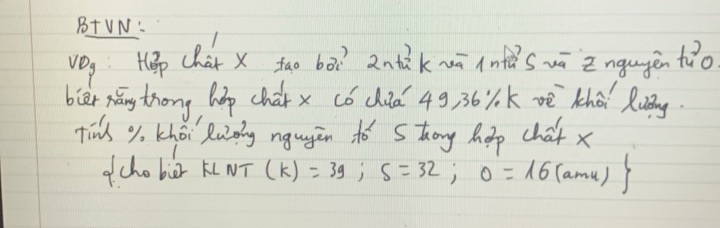 BTVN:
VD9: Hợp chất X tạo bởi 2 ntử K và 1 ntử S và Z nguyên tử O.
biết rằng trong hợp chất X có chứa 49,36% K về khối lượng.
Tính % khối lượng nguyên tố S trong hợp chất X
{cho biết KLNT (K) = 39 ; S = 32 ; O = 16 (amu) }